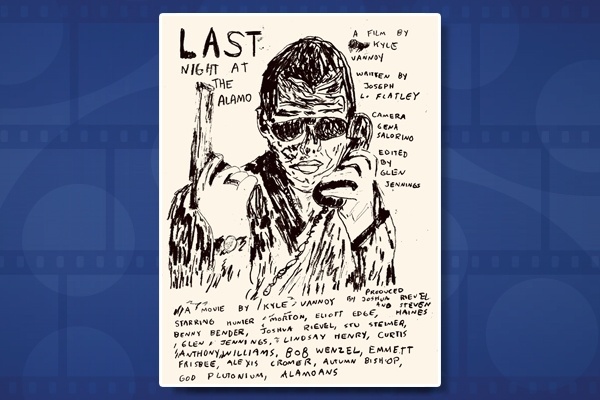 LAST
NIGHT AT
THE
ALAMO
A FILM BY
KYLE
VANNOY
WRITTEN BY
JOSEPH
L. FLATLEY
CAMERA
GENA
SALORINO
EDITED
BY
GLEN
JENNINGS
A MOVIE BY KYLE VANNOY
PRODUCED
BY JOSHUA RIEVEL
AND STEVEN
HAINES
STARRING HUNTER MORTON, ELIOTT EDGE,
BENNY BENDER, JOSHUA RIEVEL, STU STEIMER,
GLEN JENNINGS, LINDSAY HENRY, CURTIS
ANTHONY WILLIAMS, BOB WENZEL, EMMETT
FRISBEE, ALEXIS CROMER, AUTUMN BISHOP,
GOD PLUTONIUM, ALAMOANS